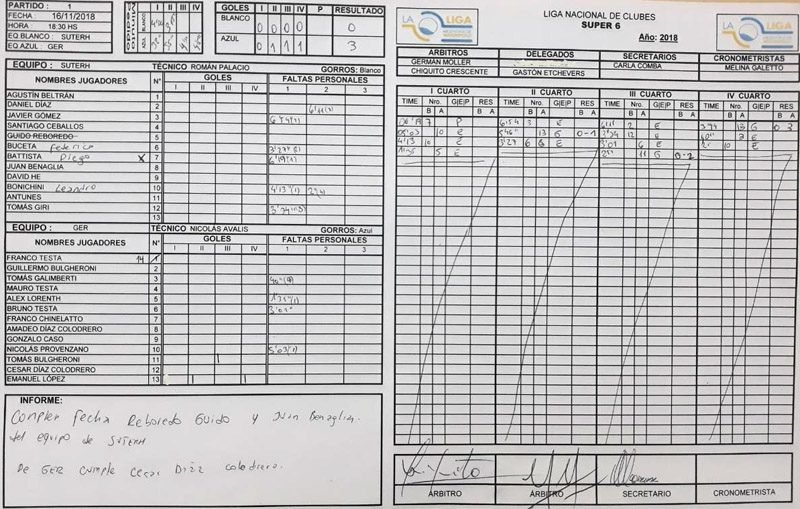 PARTIDO : 1
FECHA : 16/11/2018
HORA : 18:30 HS
EQ.BLANCO : SUTERH
EQ AZUL : GER
I II III IV
BLANCO
AZUL
GOLES I II III IV P RESULTADO
BLANCO 0 0 0 0 0
AZUL 0 1 1 1 3
EQUIPO : SUTERH TÉCNICO ROMÁN PALACIO GORROS: Blanco
NOMBRES JUGADORES N° GOLES FALTAS PERSONALES
I II III IV 1 2 3
AGUSTÍN BELTRÁN 1
DANIEL DÍAZ 2
JAVIER GÓMEZ 3
SANTIAGO CEBALLOS 4
GUIDO REBOREDO 5
BUCETA Federico 6
BATTISTA Diego X 7
JUAN BENAGLIA 8
DAVID HE 9
BONICHINI Leandro 10
ANTUNES 11
TOMÁS GIRI 12
13
EQUIPO : GER TÉCNICO NICOLÁS AVALIS GORROS: Azul
NOMBRES JUGADORES N° GOLES FALTAS PERSONALES
I II III IV 1 2 3
FRANCO TESTA 14 1
GUILLERMO BULGHERONI 2
TOMÁS GALIMBERTI 3
MAURO TESTA 4
ALEX LORENTH 5
BRUNO TESTA 6
FRANCO CHINELATTO 7
AMADEO DÍAZ COLODRERO 8
GONZALO CASO 9
NICOLÁS PROVENZANO 10
TOMÁS BULGHERONI 11
CESAR DÍAZ COLODRERO 12
EMANUEL LÓPEZ 13
INFORME:
Complen fecha Reboredo Guido y Juan Benaglia.
del equipo de SUTERH
De GER cumple Cesar Diaz colodrero.
LA LIGA
LIGA NACIONAL DE CLUBES
SUPER 6
Año: 2018
LA LIGA
ÁRBITROS DELEGADOS SECRETARIOS CRONOMETRISTAS
GERMAN MOLLER CARLA COMBA MELINA GALETTO
CHIQUITO CRESCENTE GASTÓN ETCHEVERS
I CUARTO II CUARTO III CUARTO IV CUARTO
TIME Nro. G|E|P RES TIME Nro. G|E|P RES TIME Nro. G|E|P RES TIME Nro. G|E|P RES
B A B A B A B A B A B A B A B A
7 P 6:54 3 E 2 E 13 G 0 3
5'03 10 E 5'46" 13 G 0-1 12 E 40" 3 E
4'13 10 E 3'27 6 E 3'01 6 E 10 E
5 E 11 G 0-2
ÁRBITRO ÁRBITRO SECRETARIO CRONOMETRISTA